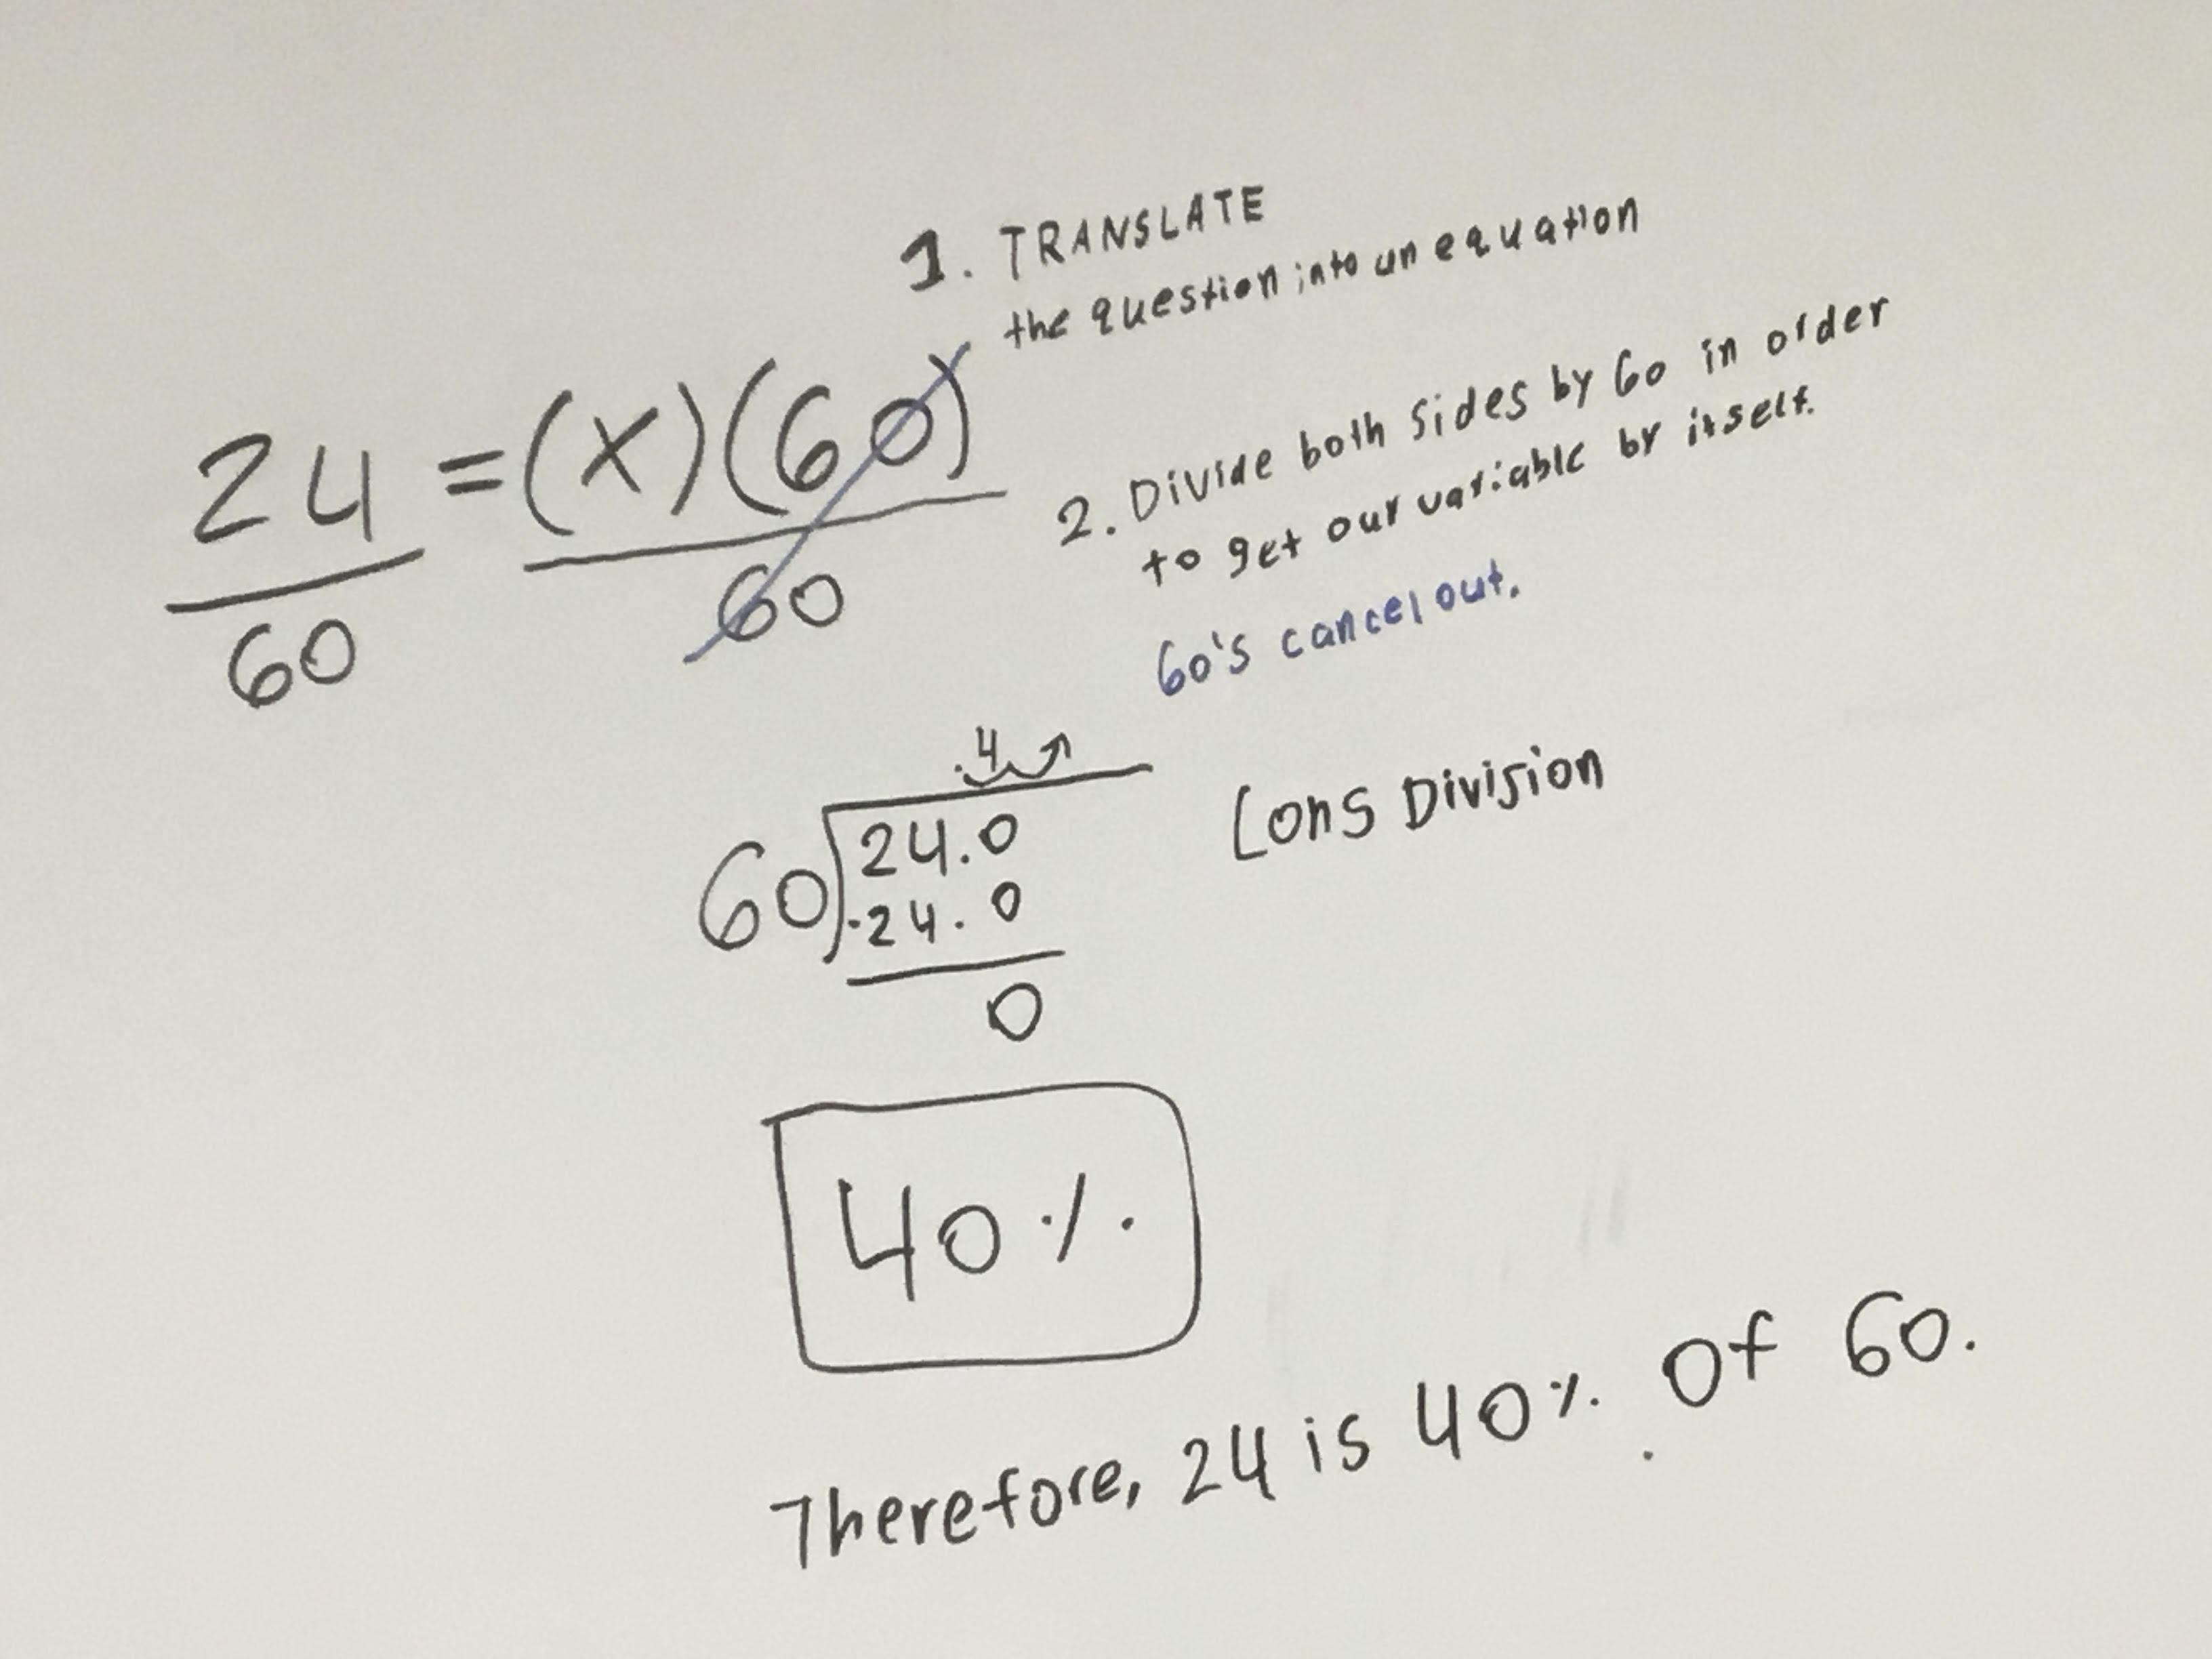 1. TRANSLATE
the question into an equation
24 = (x)(60)
60 60
2. Divide both sides by 60 in order
to get our variable by itself.
60's cancel out.
.4
60 24.0 Long Division
-24.0
0
40%
Therefore, 24 is 40% of 60.